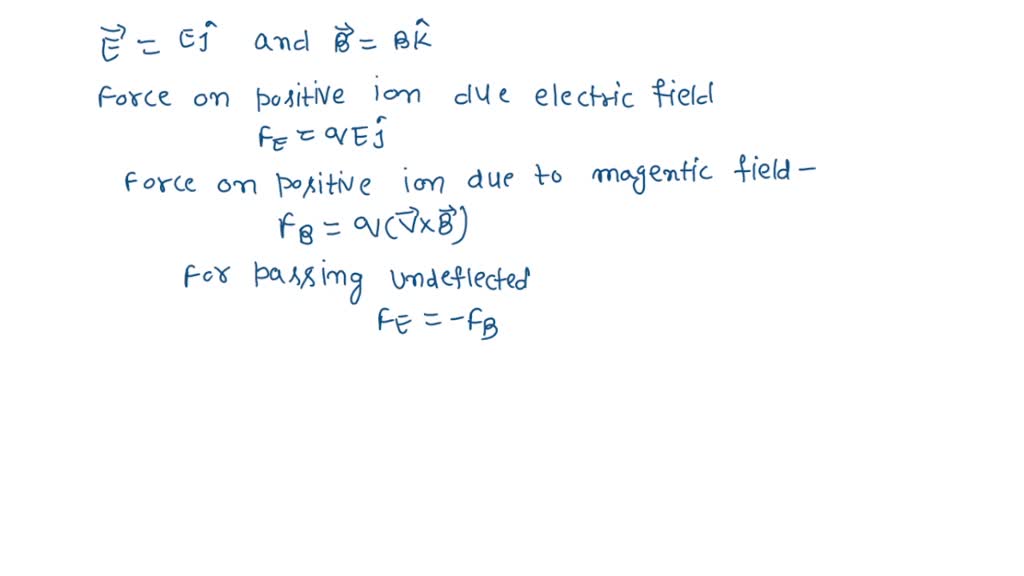 E⃗ = Eĵ and B⃗ = Bk̂
Force on positive ion due electric field
F_E = qEĵ
Force on positive ion due to magentic field –
F_B = q(V⃗×B⃗)
For passing undeflected
F_E = -F_B